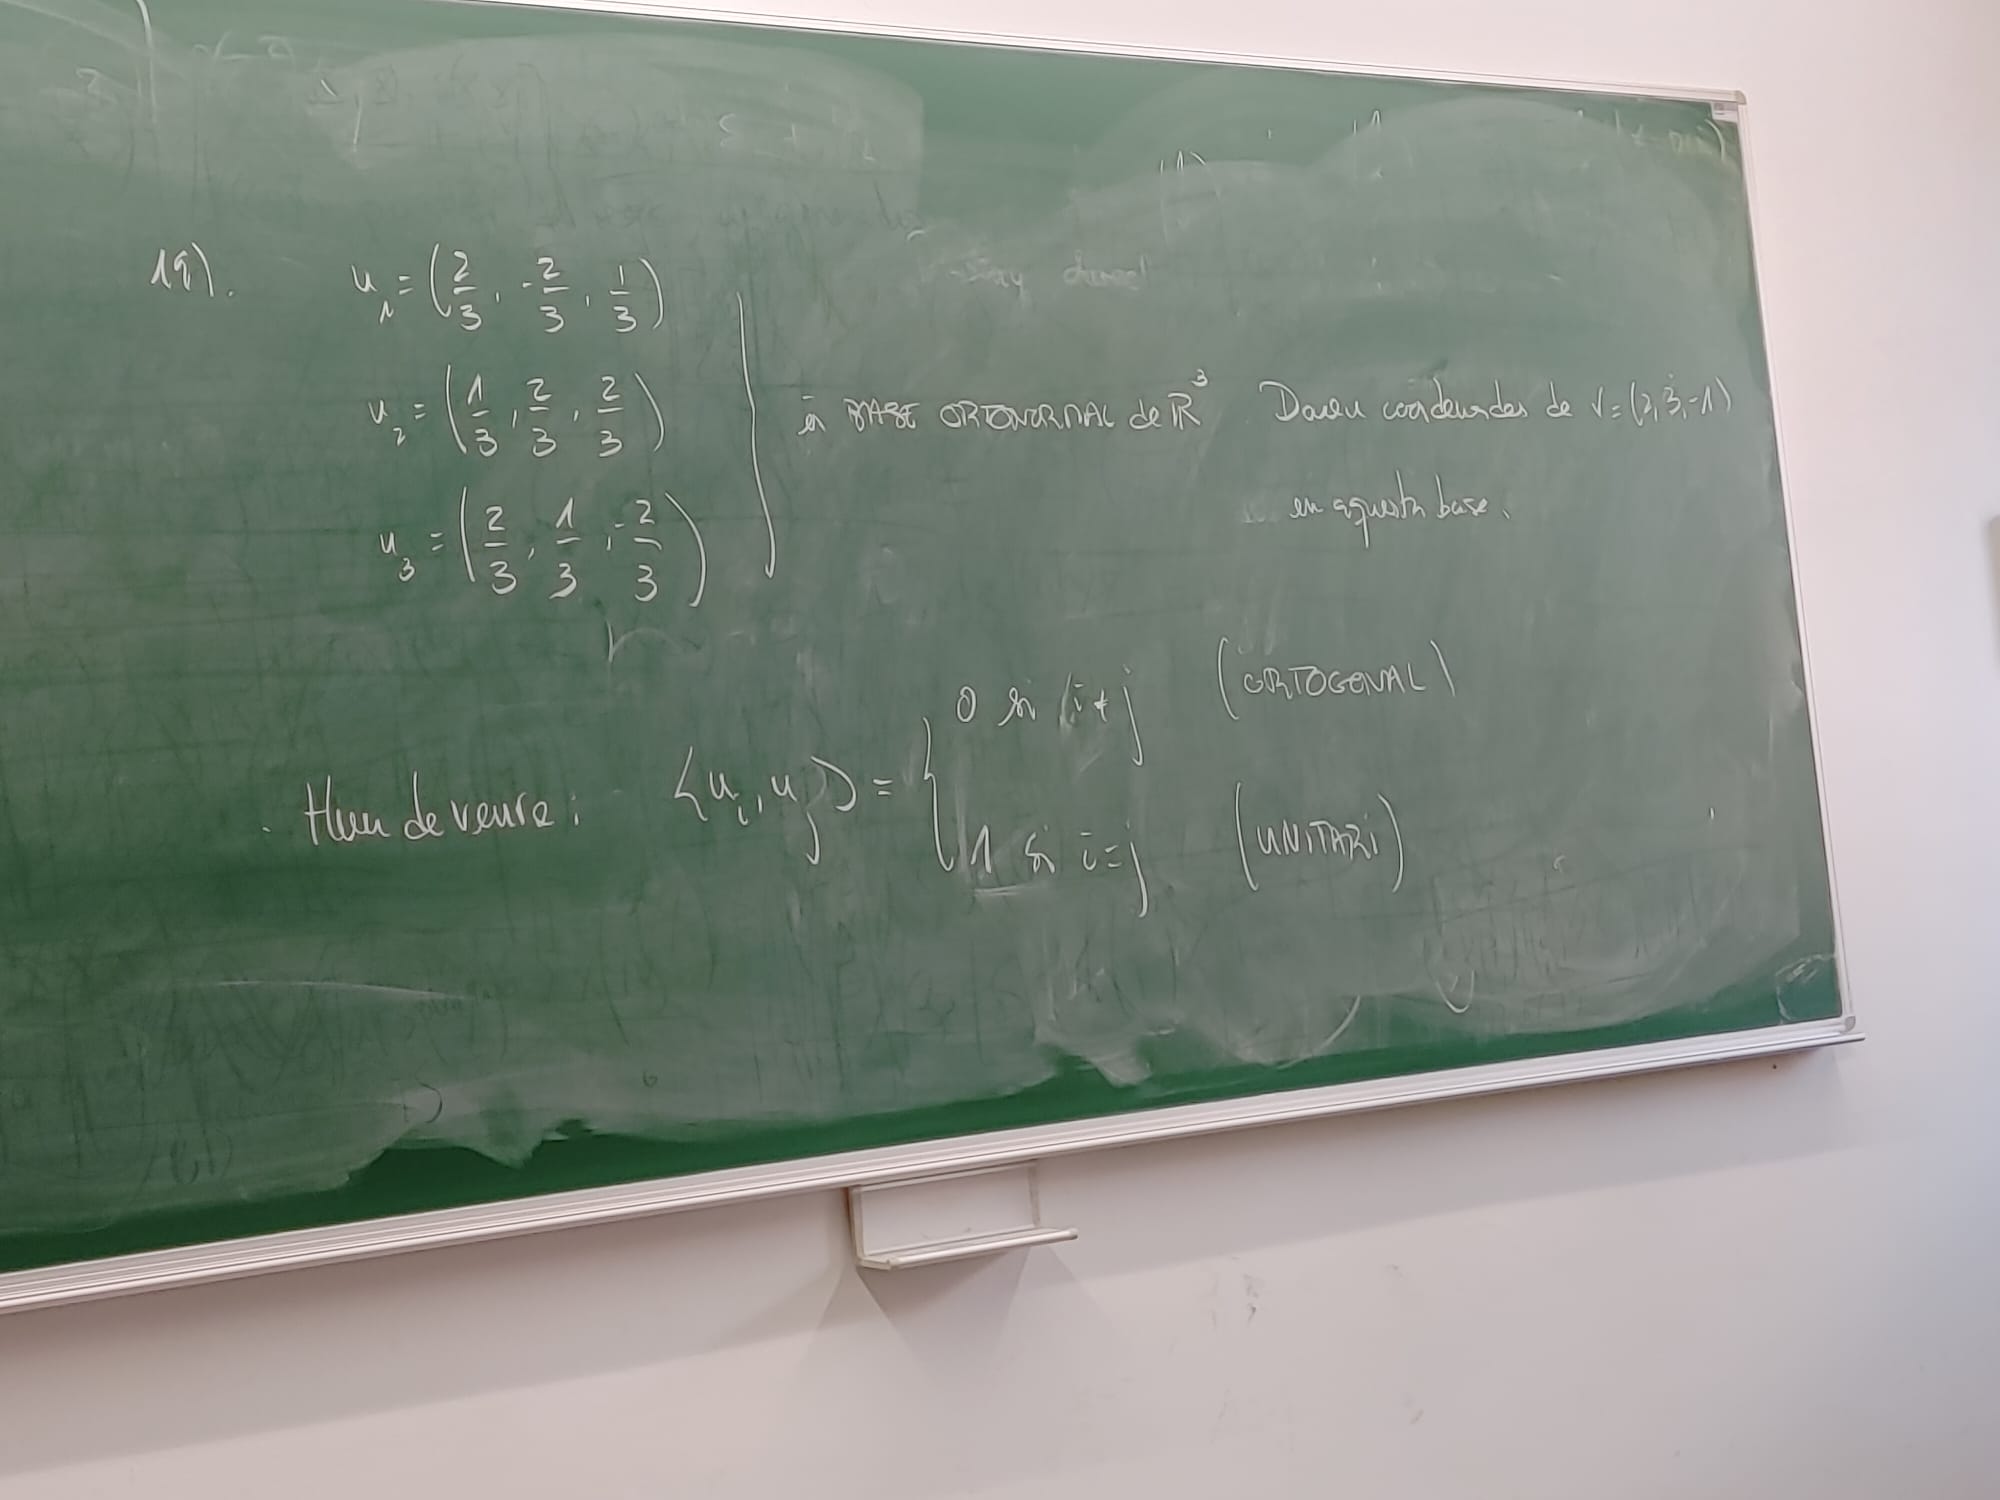 19).
u₁ = (2/3, -2/3, 1/3)
u₂ = (1/3, 2/3, 2/3)
u₃ = (2/3, 1/3, -2/3)
és BASE ORTONORMAL de ℝ³ Doneu coordenades de v = (2, 3, -1)
en aquesta base.
Hem de veure: ⟨uᵢ, uⱼ⟩ = { 0 si i ≠ j (ORTOGONAL)
1 si i = j (UNITARI)